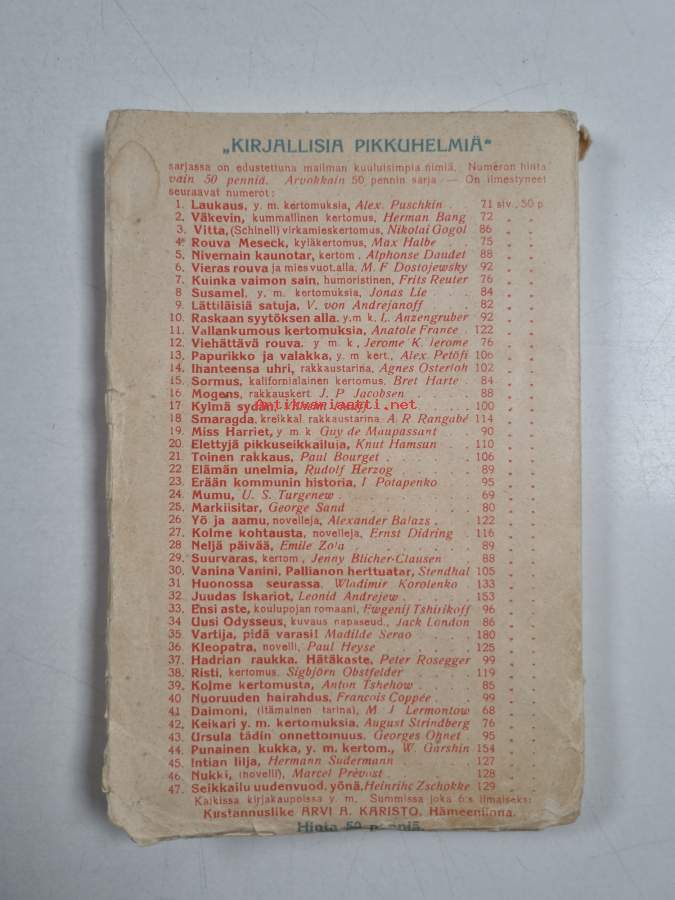 „KIRJALLISIA PIKKUHELMIÄ“
sarjassa on edustettuna mailman kuuluisimpia nimiä. Numeron hinta
vain 50 penniä. Arvokkain 50 pennin sarja — On ilmestyneet
seuraavat numerot:
1. Laukaus, y. m. kertomuksia, Alex. Puschkin . 71 siv., 50 p
2. Väkevin, kummallinen kertomus, Herman Bang 72 „ „
3. Vitta, (Schinell) virkamieskertomus, Nikolai Gogol 86 „ „
4. Rouva Meseck, kyläkertomus, Max Halbe . . 75 „ „
5. Nivernain kaunotar, kertom., Alphonse Daudet 88 „ „
6. Vieras rouva ja mies vuot.alla, M. F Dostojewsky 92 „ „
7. Kuinka vaimon sain, humoristinen, Frits Reuter 76 „ „
8 Susamel, y. m. kertomuksia, Jonas Lie . . . 84 „ „
9. Lättiläisiä satuja, V. von Andrejanoff . . . 82 „ „
10. Raskaan syytöksen alla, y.m k. L. Anzengruber 92 „ „
11. Vallankumous kertomuksia, Anatole France . 122 „ „
12. Viehättävä rouva, y m k., Jerome K. Jerome 76 „ „
13. Papurikko ja valakka, y. m kert., Alex. Petöfi 106 „ „
14. Ihanteensa uhri, rakkaustarina, Agnes Osterloh 102 „ „
15. Sormus, kalifornialainen kertomus, Bret Harte . 84 „ „
16 Mogens, rakkauskert. J. P. Jacobsen . . . 88 „ „
17 Kylmä 100 „ „
Antikvariaatti.net
18. Smaragda, kreikkal. rakkaustarina, A. R. Rangabé 114 „ „
19. Miss Harriet, y. m. k Guy de Maupassant . 90 „ „
20. Elettyjä pikkuseikkailuja, Knut Hamsun . 110 „ „
21. Toinen rakkaus, Paul Bourget . . . . 106 „ „
22. Elämän unelmia, Rudolf Herzog . . . . 89 „ „
23. Erään kommunin historia, I Potapenko . . 95 „ „
24. Mumu, U. S. Turgenew . . . . . . 69 „ „
25. Markiisitar, George Sand . . . . . 80 „ „
26. Yö ja aamu, novelleja, Alexander Balazs . . 122 „ „
27. Kolme kohtausta, novelleja, Ernst Didring . 116 „ „
28 Neljä päivää, Emile Zola . . . . . 89 „ „
29. Suurvaras, kertom, Jenny Blicher-Clausen . . 88 „ „
30. Vanina Vanini, Pallianon herttuatar, Stendhal 105 „ „
31 Huonossa seurassa, Wladimir Korolenko . 133 „ „
32. Juudas Iskariot, Leonid Andrejew . . . . 153 „ „
33. Ensi aste, koulupojan romaani, Ewgenij Tshirikoff 96 „ „
34 Uusi Odysseus, kuvaus napaseud., Jack London 86 „ „
35. Vartija, pidä varasi! Matilde Serao . . . 180 „ „
36. Kleopatra, novelli, Paul Heyse . . . . 125 „ „
37. Hadrian raukka. Hätäkaste, Peter Rosegger 99 „ „
38. Risti, kertomus, Sigbjörn Obstfelder . . . 119 „ „
39. Kolme kertomusta, Anton Tshehow . . . 85 „ „
40 Nuoruuden hairahdus, Francois Coppée . . 99 „ „
41 Daimoni, (itämainen tarina), M J Lermontow 68 „ „
42, Keikari y. m. kertomuksia, August Strindberg 76 „ „
43. Ursula tädin onnettomuus, Georges Ohnet . 95 „ „
44. Punainen kukka, y. m. kertom., W. Garshin 154 „ „
45. Intian lilja, Hermann Sudermann . . . . 127 „ „
46. Nukki, (novelli), Marcel Prévost . . . . 128 „ „
47. Seikkailu uudenvuod. yönä, Heinrihc Zschokke 129 „ „
Kaikissa kirjakaupoissa y. m. Summissa joka 6:s ilmaiseks:
Kustannusliike ARVI A. KARISTO, Hämeenlinna.
Hinta 50 penniä.